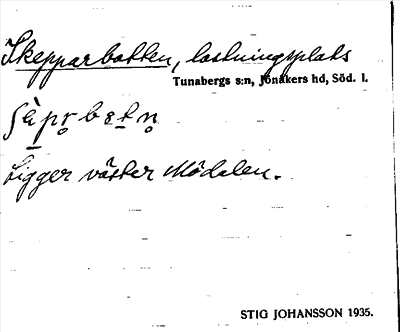 Skepparbotten, lastningsplats
Tunabergs s:n, Jönåkers hd, Söd. l.
Ligger väster Mödalen.
STIG JOHANSSON 1935.